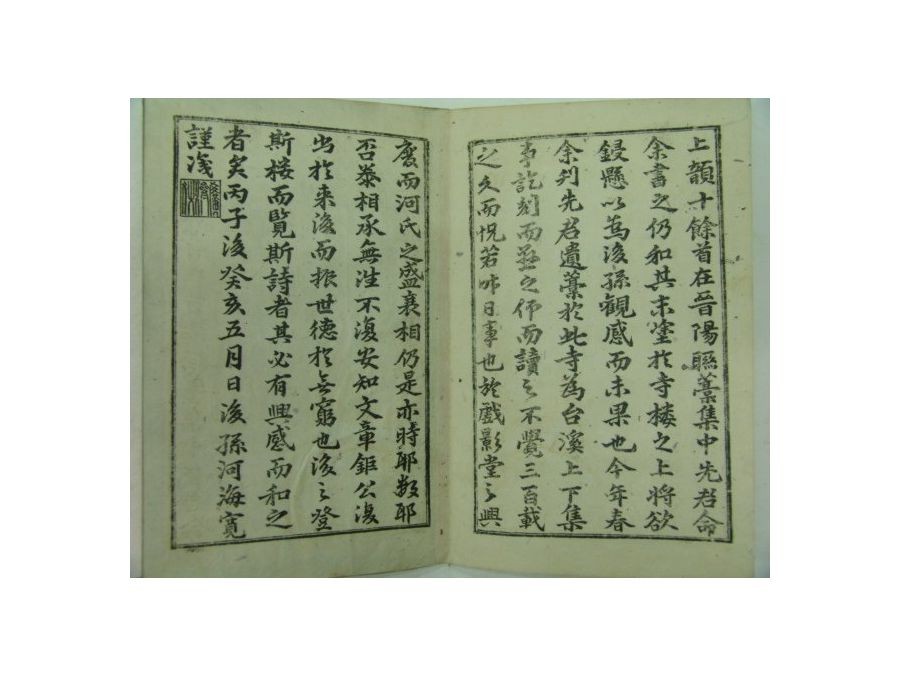 上韻十餘首在晉陽聯藁集中先君命
余書之仍和其末塗於寺楼之上將欲
鋟懸以為後孫觀感而未果也今年春
余刋先君遺藁於此寺為台溪上下集
事訖刻而並之仰而讀之不覺三百載
之久而怳若昨日事也於戲影堂之興
廢而河氏之盛衰相仍是亦時耶数耶
否泰相承無徃不復安知文章鉅公復
出於来後而振世德於無窮也後之登
斯楼而覧斯詩者其必有興感而和之
者矣丙子後癸亥五月日後孫河海寬
謹識